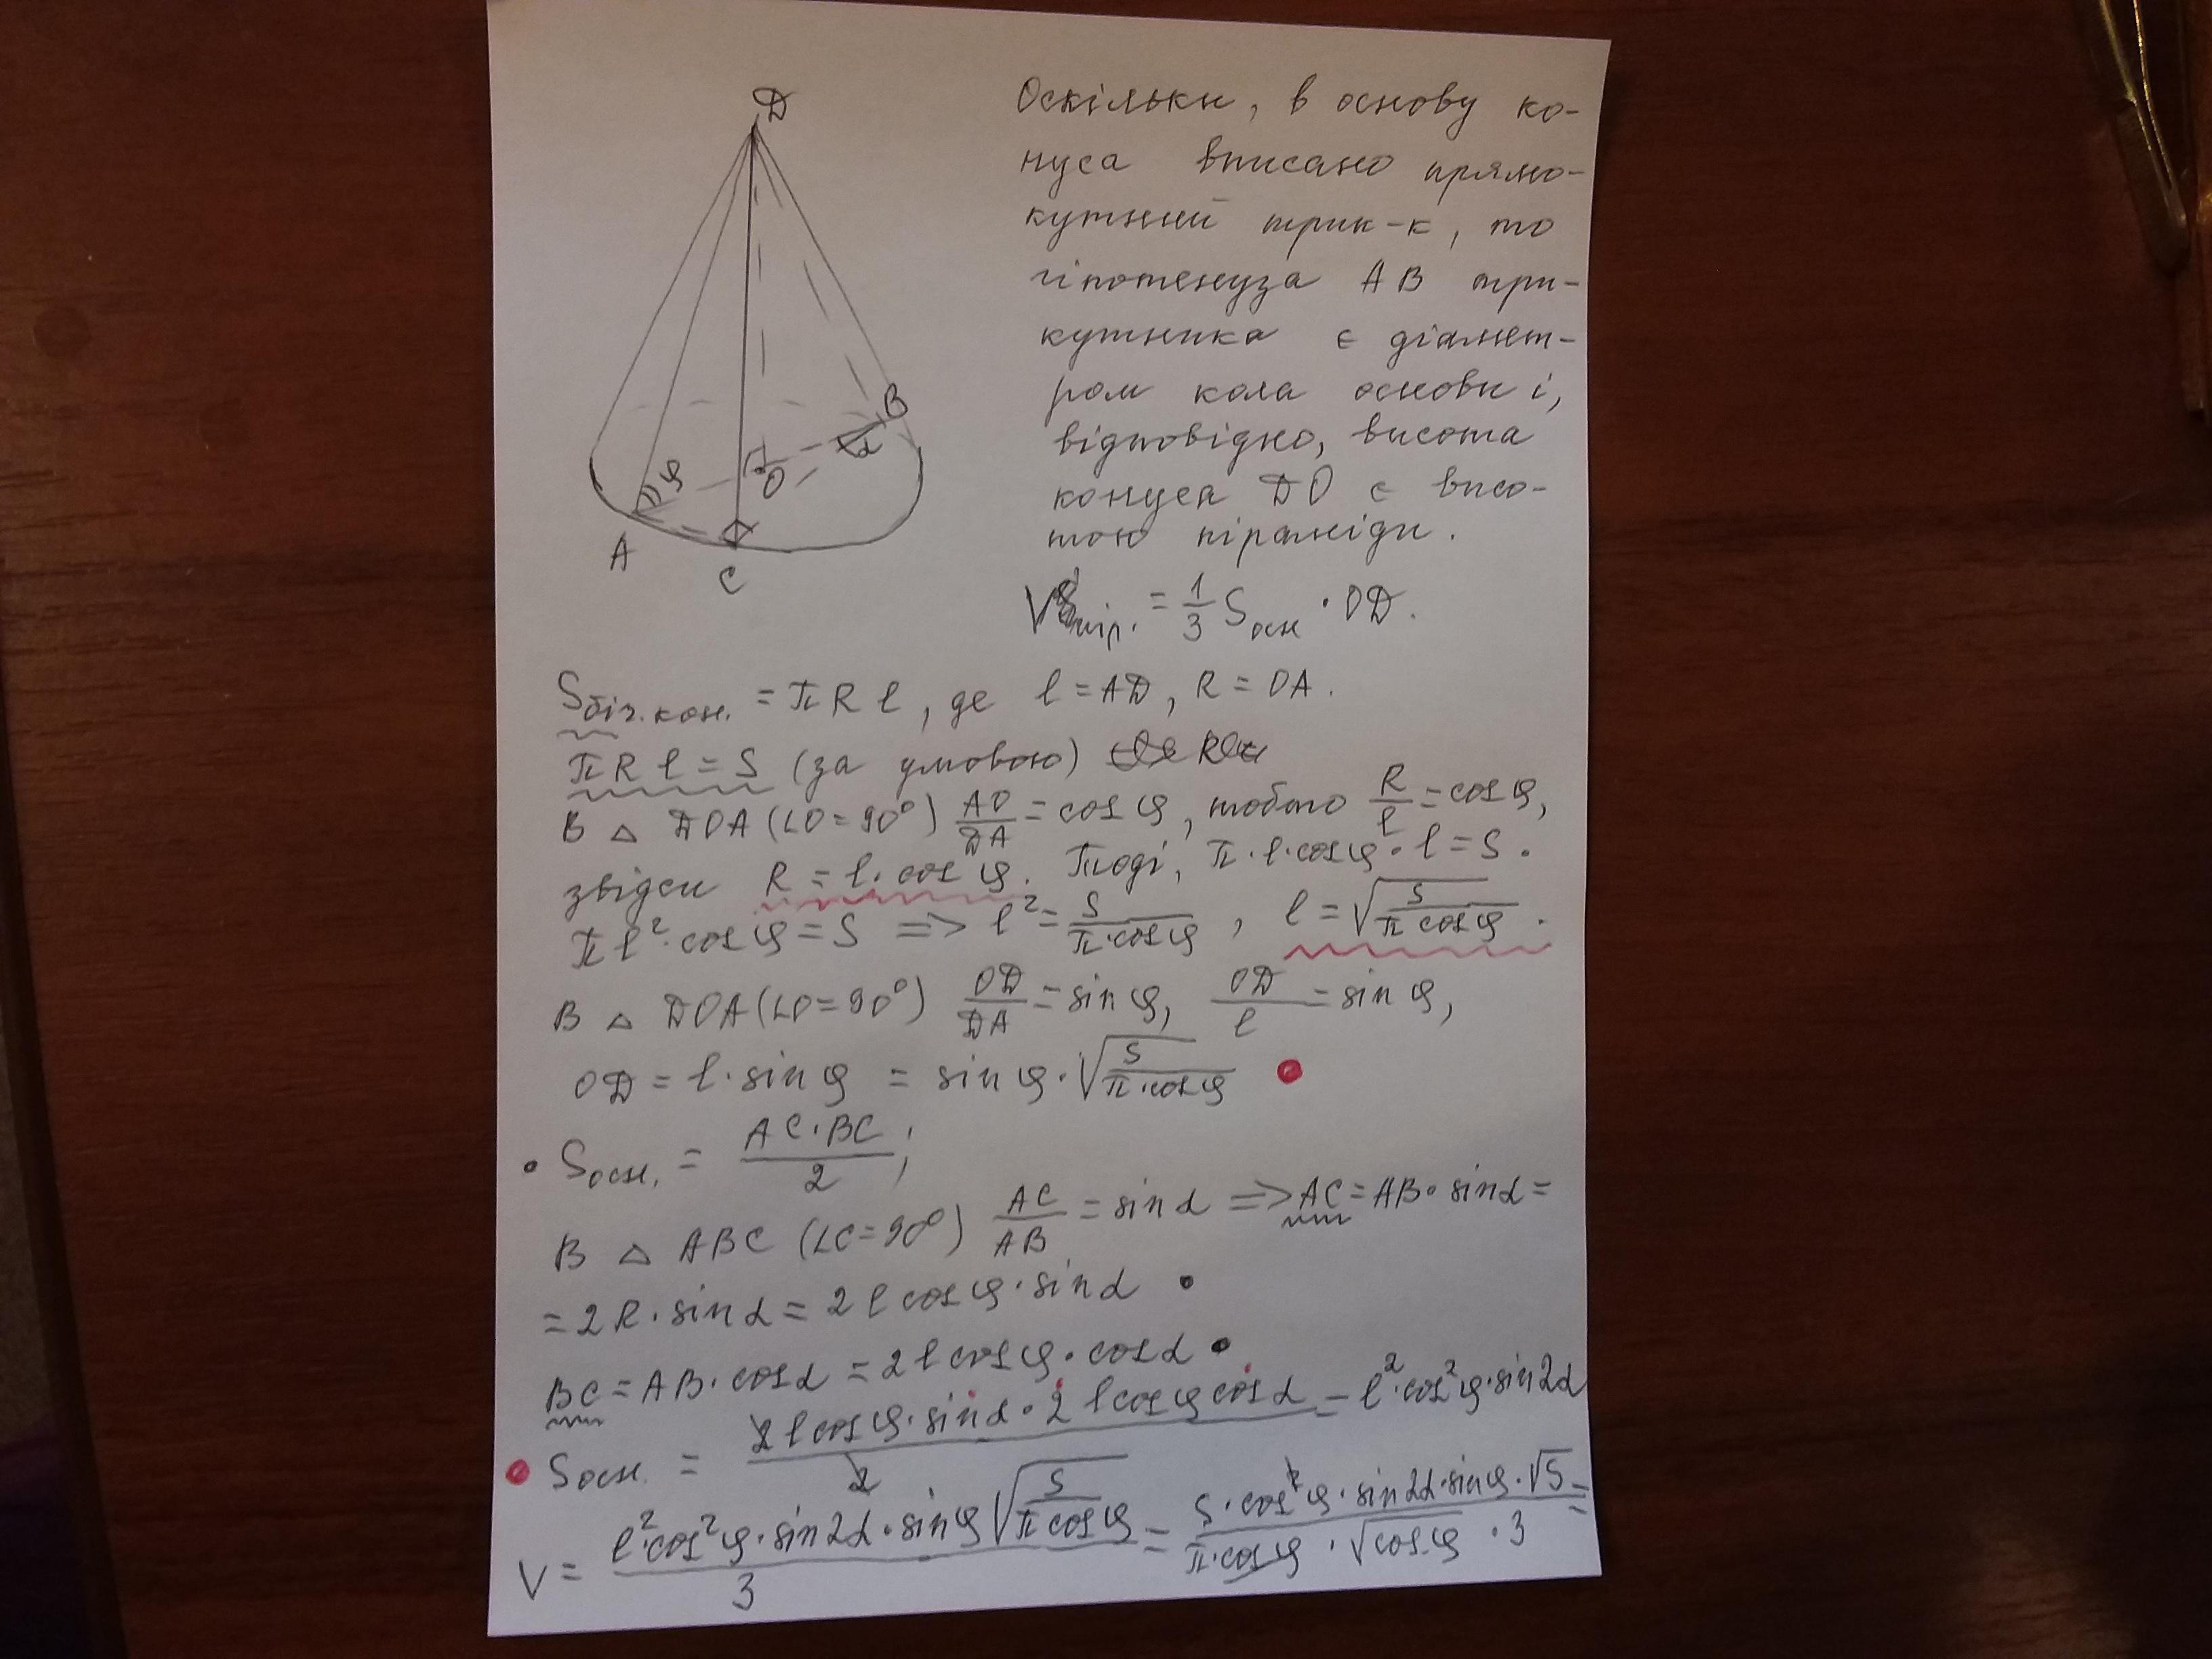 D
B
α
φ
O
A
C
Оскільки, в основу ко-
нуса вписано прямо-
кутний трик-к, то
гіпотенуза AB три-
кутника є діамет-
ром кола основи і,
відповідно, висота
конуса DO є висо-
тою піраміди.
Vпір. = 1/3 Sосн · OD.
Sбіч.кон. = πRl, де l = AD, R = OA.
πRl = S (за умовою)
В △ DOA (∠O = 90°) AO/DA = cos φ, тобто R/l = cos φ,
звідси R = l · cos φ. Тоді, π · l · cos φ · l = S.
πl² · cos φ = S => l² = S/(π · cos φ), l = √(S/(π cos φ)).
В △ DOA (∠O = 90°) OD/DA = sin φ, OD/l = sin φ,
OD = l · sin φ = sin φ · √(S/(π · cos φ))
• Sосн. = AC · BC/2;
В △ ABC (∠C = 90°) AC/AB = sin α => AC = AB · sin α =
= 2R · sin α = 2l cos φ · sin α •
BC = AB · cos α = 2l cos φ · cos α •
• Sосн. = (2l cos φ · sin α · 2l cos φ cos α)/2 = l² · cos² φ · sin 2α
V = (l² · cos² φ · sin 2α · sin φ √(S/(π cos φ)))/3 = (S · cos² φ · sin 2α · sin φ · √S)/(π · cos φ · √cos φ · 3) =